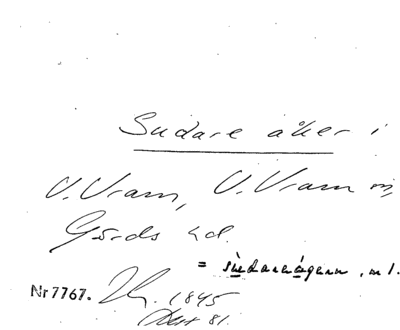 Sudare åker i
V. Vram, V. Vram sn,
Gärds hd.
= sudareågern, n 1.
Nr 7767. 1845
81.